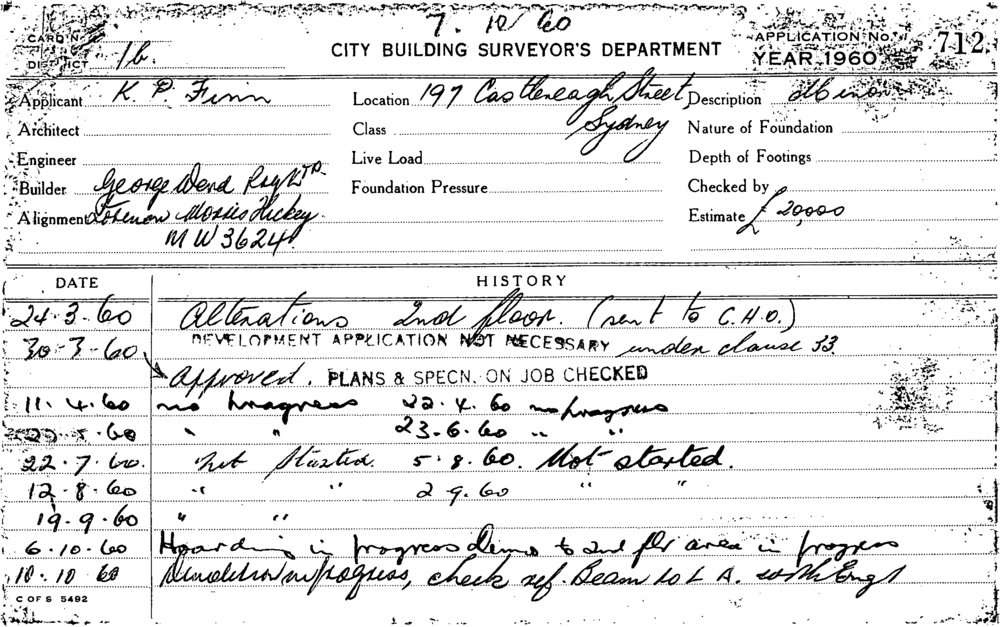 7. 10/60
CARD No.
DISTRICT 1b.
CITY BUILDING SURVEYOR'S DEPARTMENT
APPLICATION No. 712
YEAR 1960
Applicant K. P. Finn
Location 197 Castlereagh Street, Sydney
Description Minor
Architect
Class
Nature of Foundation
Engineer
Live Load
Depth of Footings
Builder George Ward
Foundation Pressure
Checked by
Alignment Foreman Hickey.
MW3624
Estimate £20,000
DATE HISTORY
24.3.60 Alterations 2nd floor. (sent to C.H.O.)
30.3.60 DEVELOPMENT APPLICATION NOT NECESSARY under clause 33.
Approved. PLANS & SPECN. ON JOB CHECKED
11.4.60 no progress 22.4.60 no progress
.5.60 " " 23.6.60 " "
22.7.60. Not Started. 5.8.60. Not started.
12.8.60 " " 2 9.60 " "
19.9.60 " "
6.10.60 Hoarding in progress Demo to 2nd flr area in progress
10.10 60 Demolition in progress, check ref. Beam to L A. with Eng
C OF S 5492